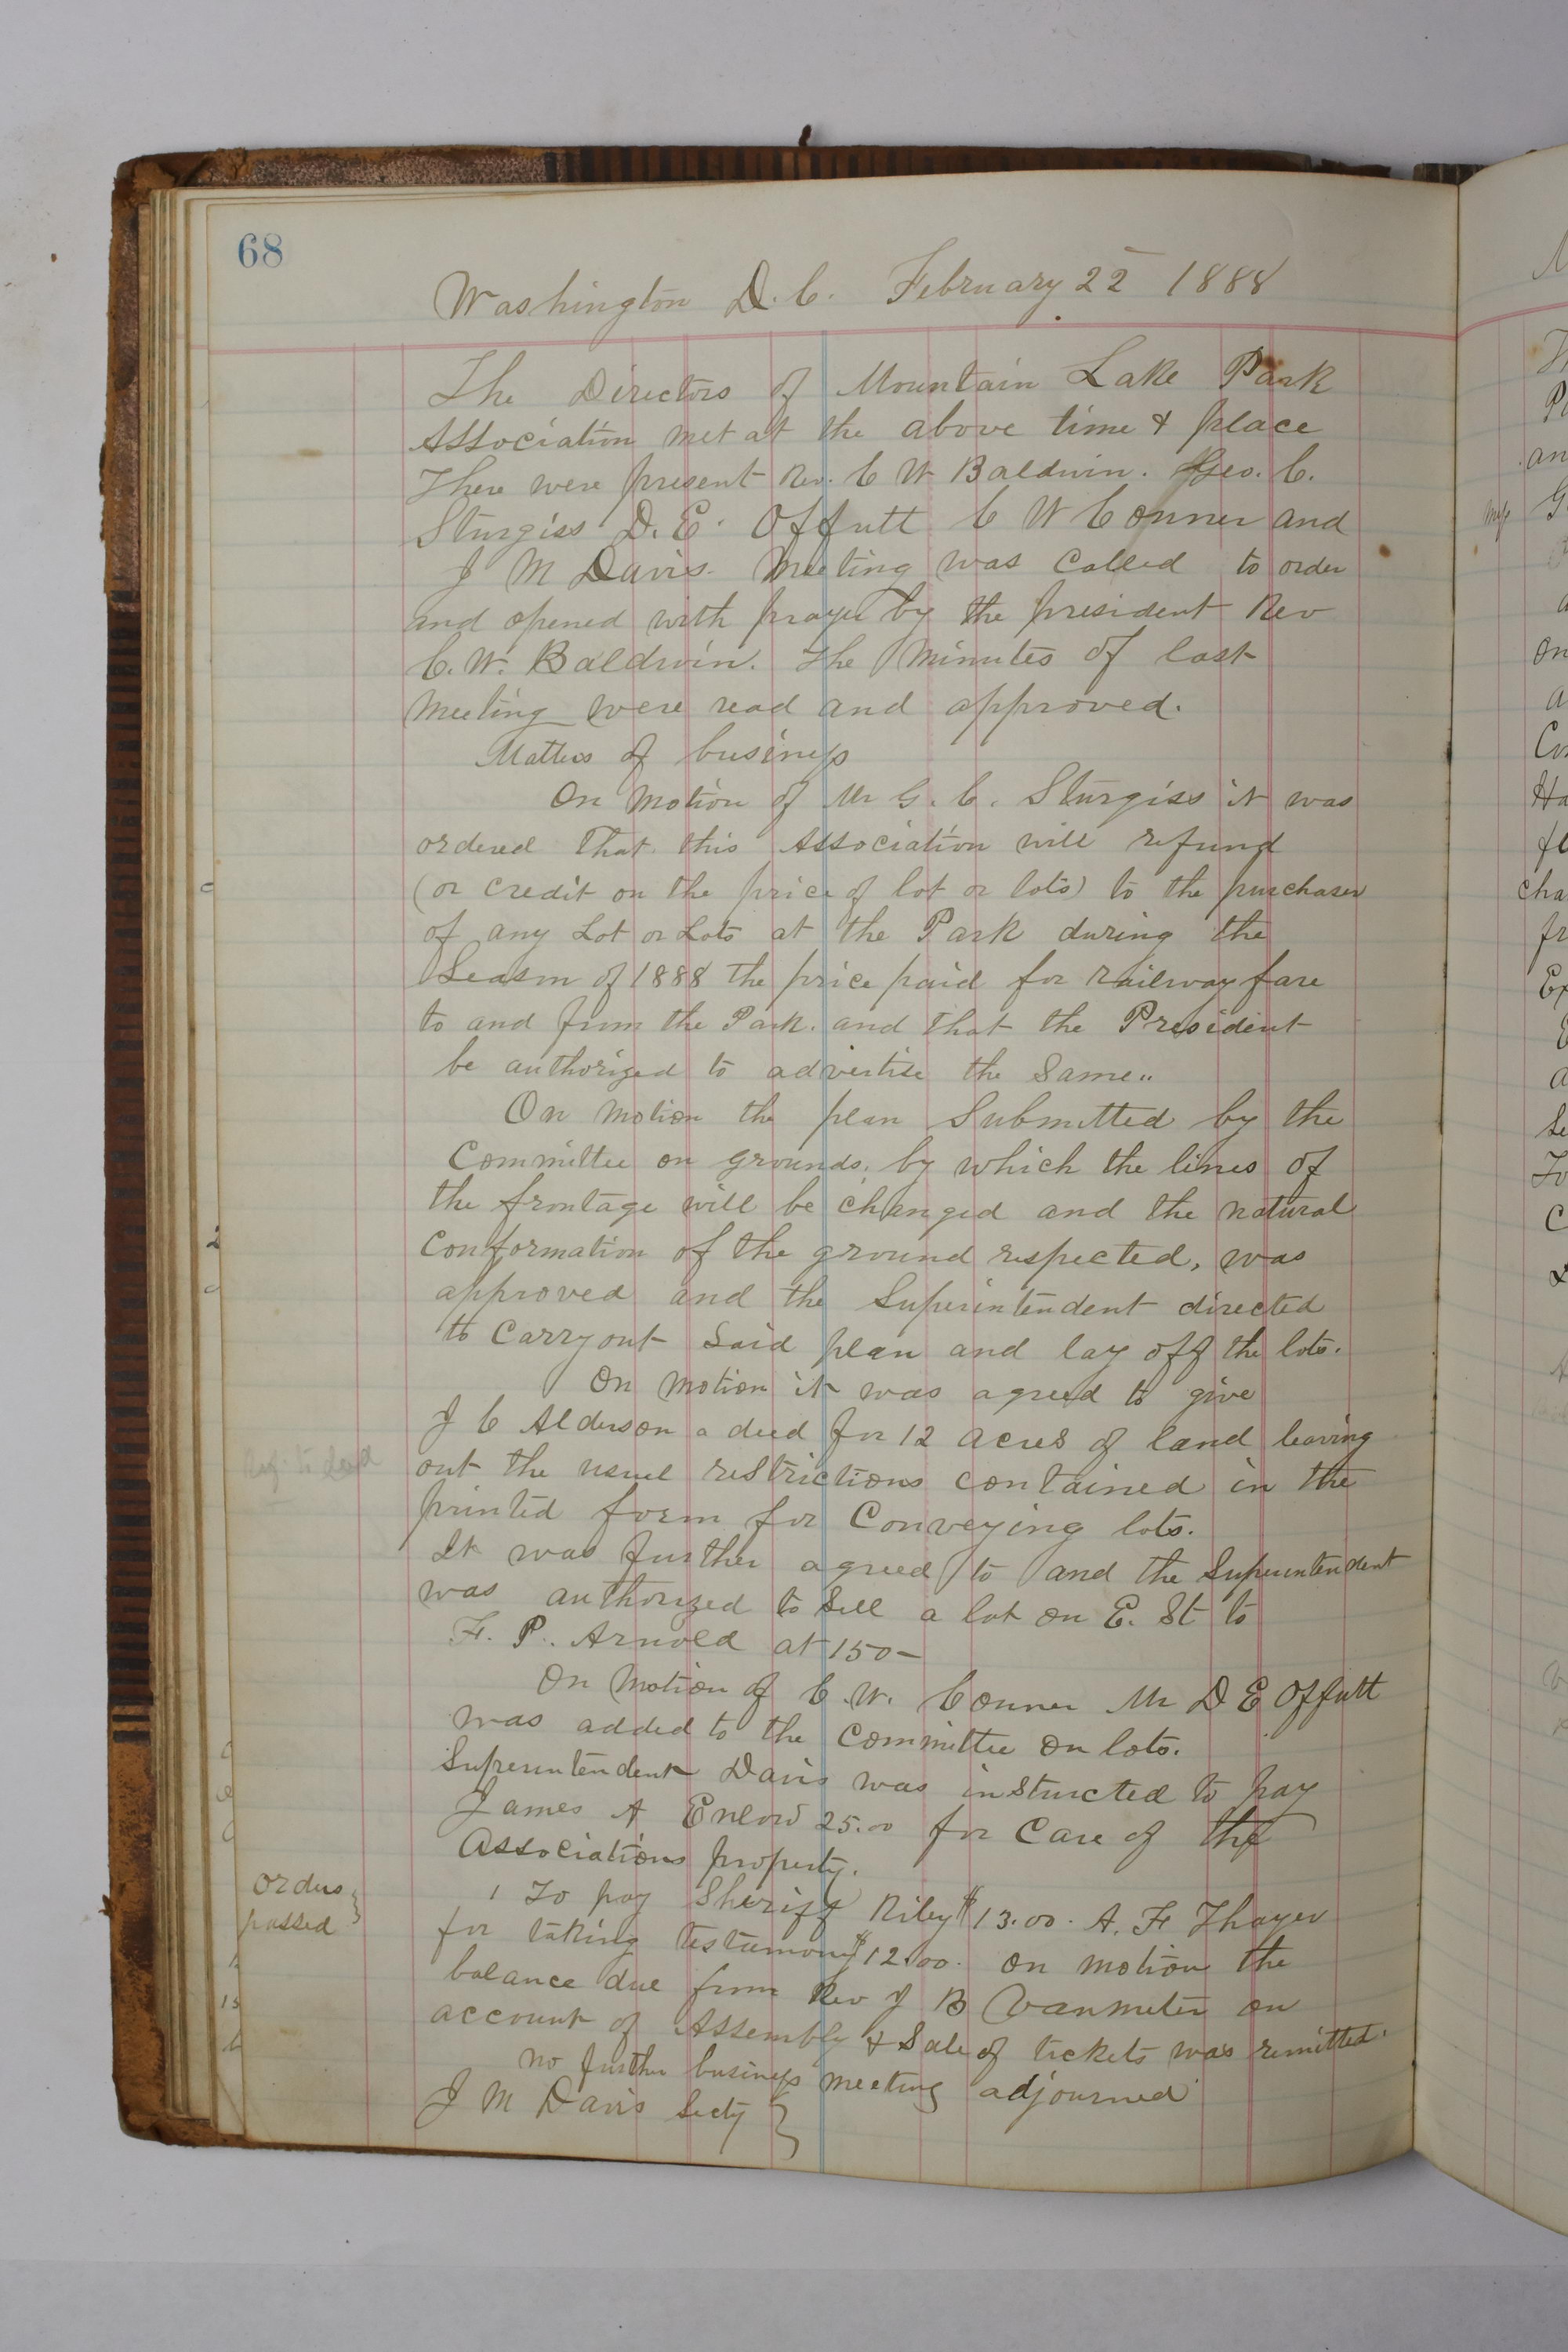 68
Washington D.C. February 22 1888
The Directors of Mountain Lake Park
Association met at the above time & place
There were present Rev. C W Baldwin. Geo. C.
Sturgiss D. E. Offutt C W Conner and
J M Davis. Meeting was Called to order
and opened with prayer by the president Rev
C. W. Baldwin. The minutes of last
meeting were read and approved.
Matters of business
On motion of Mr G. C. Sturgiss it was
ordered That this Association will refund
(or credit on the price of lot or lots) to the purchaser
of any Lot or Lots at the Park during the
Season of 1888 the price paid for railway fare
to and from the Park. and that the President
be authorized to advertise the same"
On motion the plan Submitted by the
Committee on grounds, by which the lines of
the frontage will be changed and the natural
conformation of the ground respected, was
approved and the Superintendent directed
to Carry out Said plan and lay off the lots.
On motion it was agreed to give
J C Alderson a deed for 12 acres of land leaving
Ref. to deed
out the usuel restrictions contained in the
printed form for Conveying lots.
It was further agreed to and the Superintendent
was authorized to Sell a lot on E. St to
F. P. Arnold at 150-
On Motion of C. W. Conner Mr D E Offutt
was added to the Committee on lots.
Superintendent Davis was instructed to pay
James A Enlow 25.00 for Care of the
Associations property.
orders
passed
To pay Sheriff Riley $13.00. A. F. Thayer
for taking testimony $12.00. On motion the
balance due from Rev J B Vanmeter on
account of Assembly & Sale of tickets was remitted.
no further business meeting adjourned
J M Davis Secty